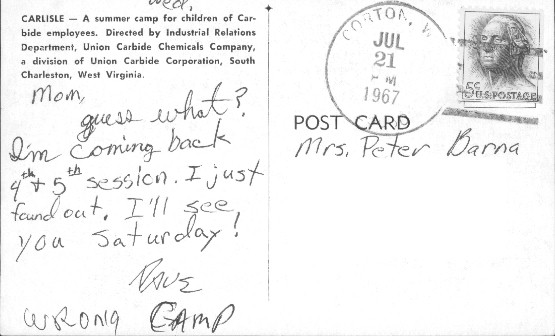 Wed.
CARLISLE — A summer camp for children of Car-
bide employees. Directed by Industrial Relations
Department, Union Carbide Chemicals Company,
a division of Union Carbide Corporation, South
Charleston, West Virginia.
Mom,
guess what?
I'm coming back
4th + 5th session. I just
found out. I'll see
you Saturday!
DAVE
WRONG CAMP
CORTON, W
JUL
21
PM
1967
5¢ U.S. POSTAGE
POST CARD
Mrs. Peter Barna